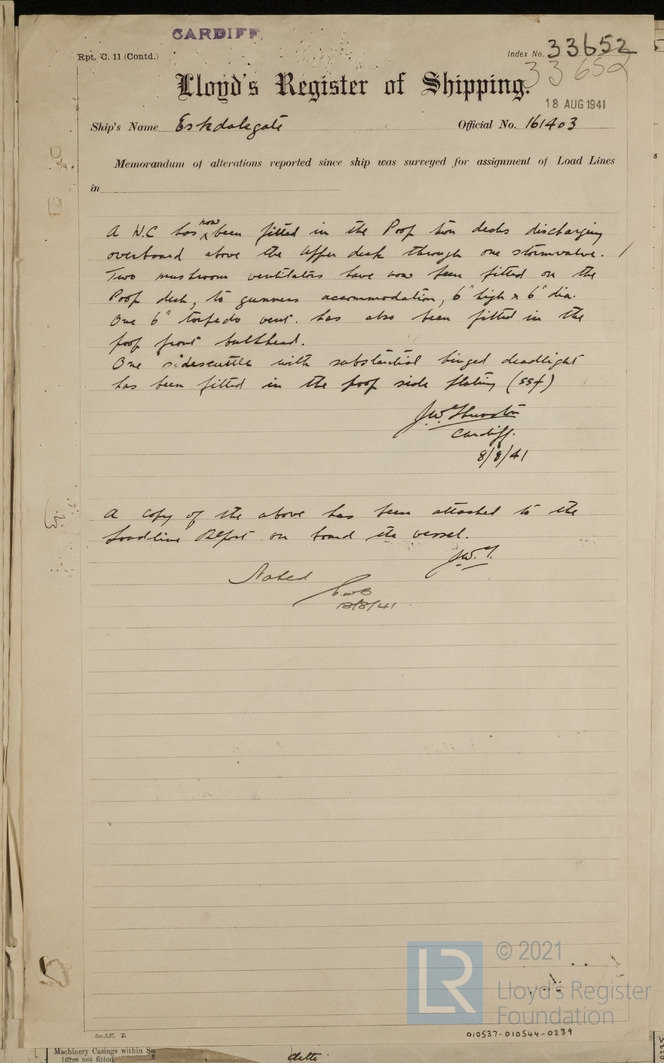 CARDIFF
Rpt. C. 11 (Contd.)
Index No. 33652
33652
Lloyd's Register of Shipping.
18 AUG 1941
Ship's Name Eskdalegate
Official No. 161403
Memorandum of alterations reported since ship was surveyed for assignment of Load Lines
in
A W.C has now been fitted in the Poop tween decks discharging
overboard above the upper deck through one stormvalve.
Two mushroom ventilators have now been fitted on the
Poop deck, to gunners accommodation, 6" high x 6" dia.
One 6" torpedo vent. has also been fitted in the
poop front bulkhead.
One sidescuttle with substantial hinged deadlight
has been fitted in the poop side plating (SS4)
Cardiff.
8/8/41
A copy of the above has been attached to the
Loadline Report on board the vessel.
J.W.T.
Noted
18/8/41
© 2021
LR
Lloyd's Register
Foundation
010537-010544-0239
Machinery Casings within
tures not fitted
ditto